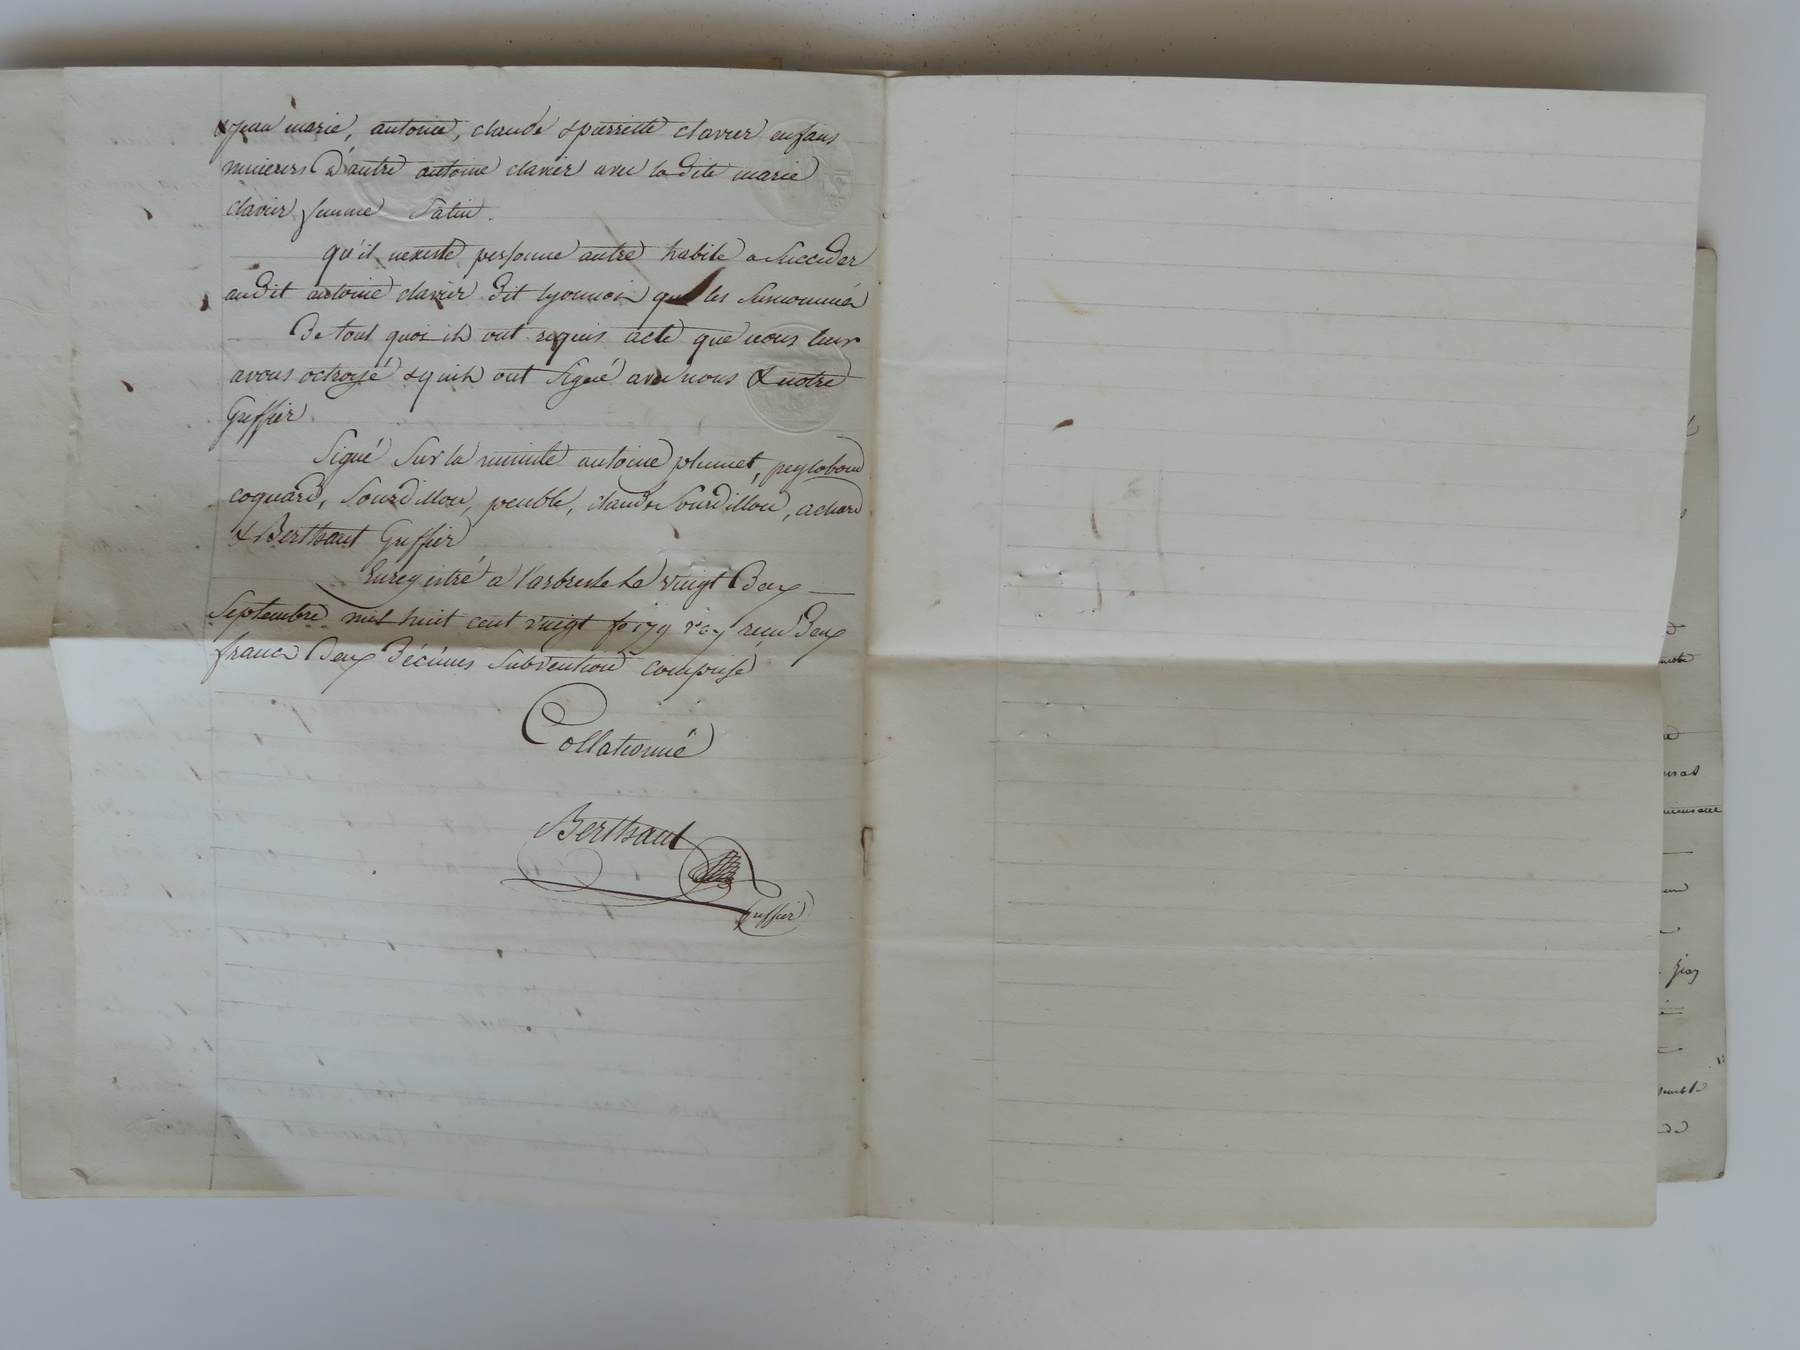 & jean marie, antoine, claude & pierrette clavier enfans
mineurs d'autre antoine clavier avec la dite marie
clavier femme Patin.
qu'il nexiste personne autre habile a succeder
audit antoine clavier dit lyonnois que les surnommés
De tout quoi ils ont requis acte que nous leur
avons octroyé & quils ont signé avec nous & notre
Greffier.
Signé sur la minute antoine plumet,
coquard, Sourdillon, peuble, claude Sourdillon, achard
& Berthaut Greffier
Enregistré a l'arbresle le vingt Deux
Septembre mil huit cent vingt fo 179 reçu Deux
francs Deux Décimes subvention comprise
Collationné
Berthaut
Greffier